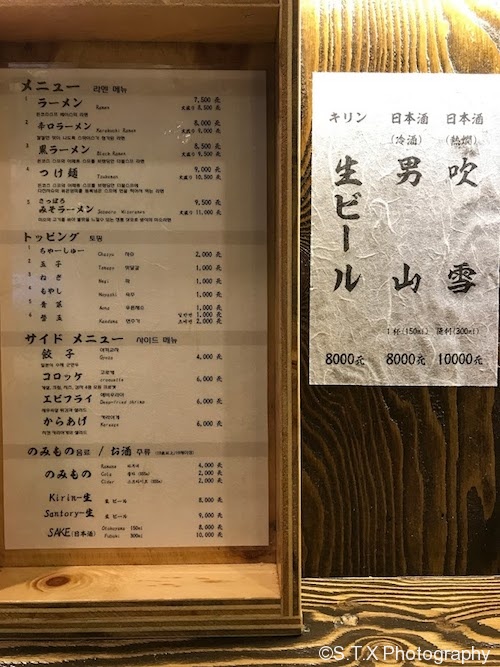 メニュー 라멘 메뉴
1 ラーメン Ramen 7,500 元
大盛り 8,500元
2 辛口ラーメン Karakuchi Ramen 8,000 元
大盛り 9,000元
3 黒ラーメン Black Ramen 8,500 元
大盛り 9,500元
4 つけ麺 Tsukemen 9,000 元
大盛り 10,500元
5 さっぽろ
みそラーメン 9,500 元
大盛り 11,000元
トッピング 토핑
1 ちゃーしゅー 차슈 2,000 元
2 玉子 Tamago 맛달걀 1,000 元
3 ねぎ Negi 파 1,000 元
4 もやし Moyashi 숙주 1,000 元
5 青菜 Aona 1,000 元
6 替玉 Kaedama 면추가 1,000 元
2,000 元
サイド メニュー 사이드 메뉴
餃子 Gyoza 4,000 元
コロッケ 고로케 6,000 元
エビフライ Deep-fried shrimp 6,000 元
からあげ Karaage 6,000 元
のみもの음료 / お酒 주류
のみもの 4,000 元
Cola 2,000 元
Cider 2,000 元
Kirin-生 生 ビール 8,000 元
Santory-生 生 ビール 9,000 元
SAKE(日本酒) Otokoyama 150ml 8,000 元
Fubuki 300ml 10,000 元
キリン 生ビール 8000元
日本酒 (冷酒) 男山 1杯(150ml) 8000元
日本酒 (熱燗) 吹雪 徳利(300ml) 10000元
©S T X Photography